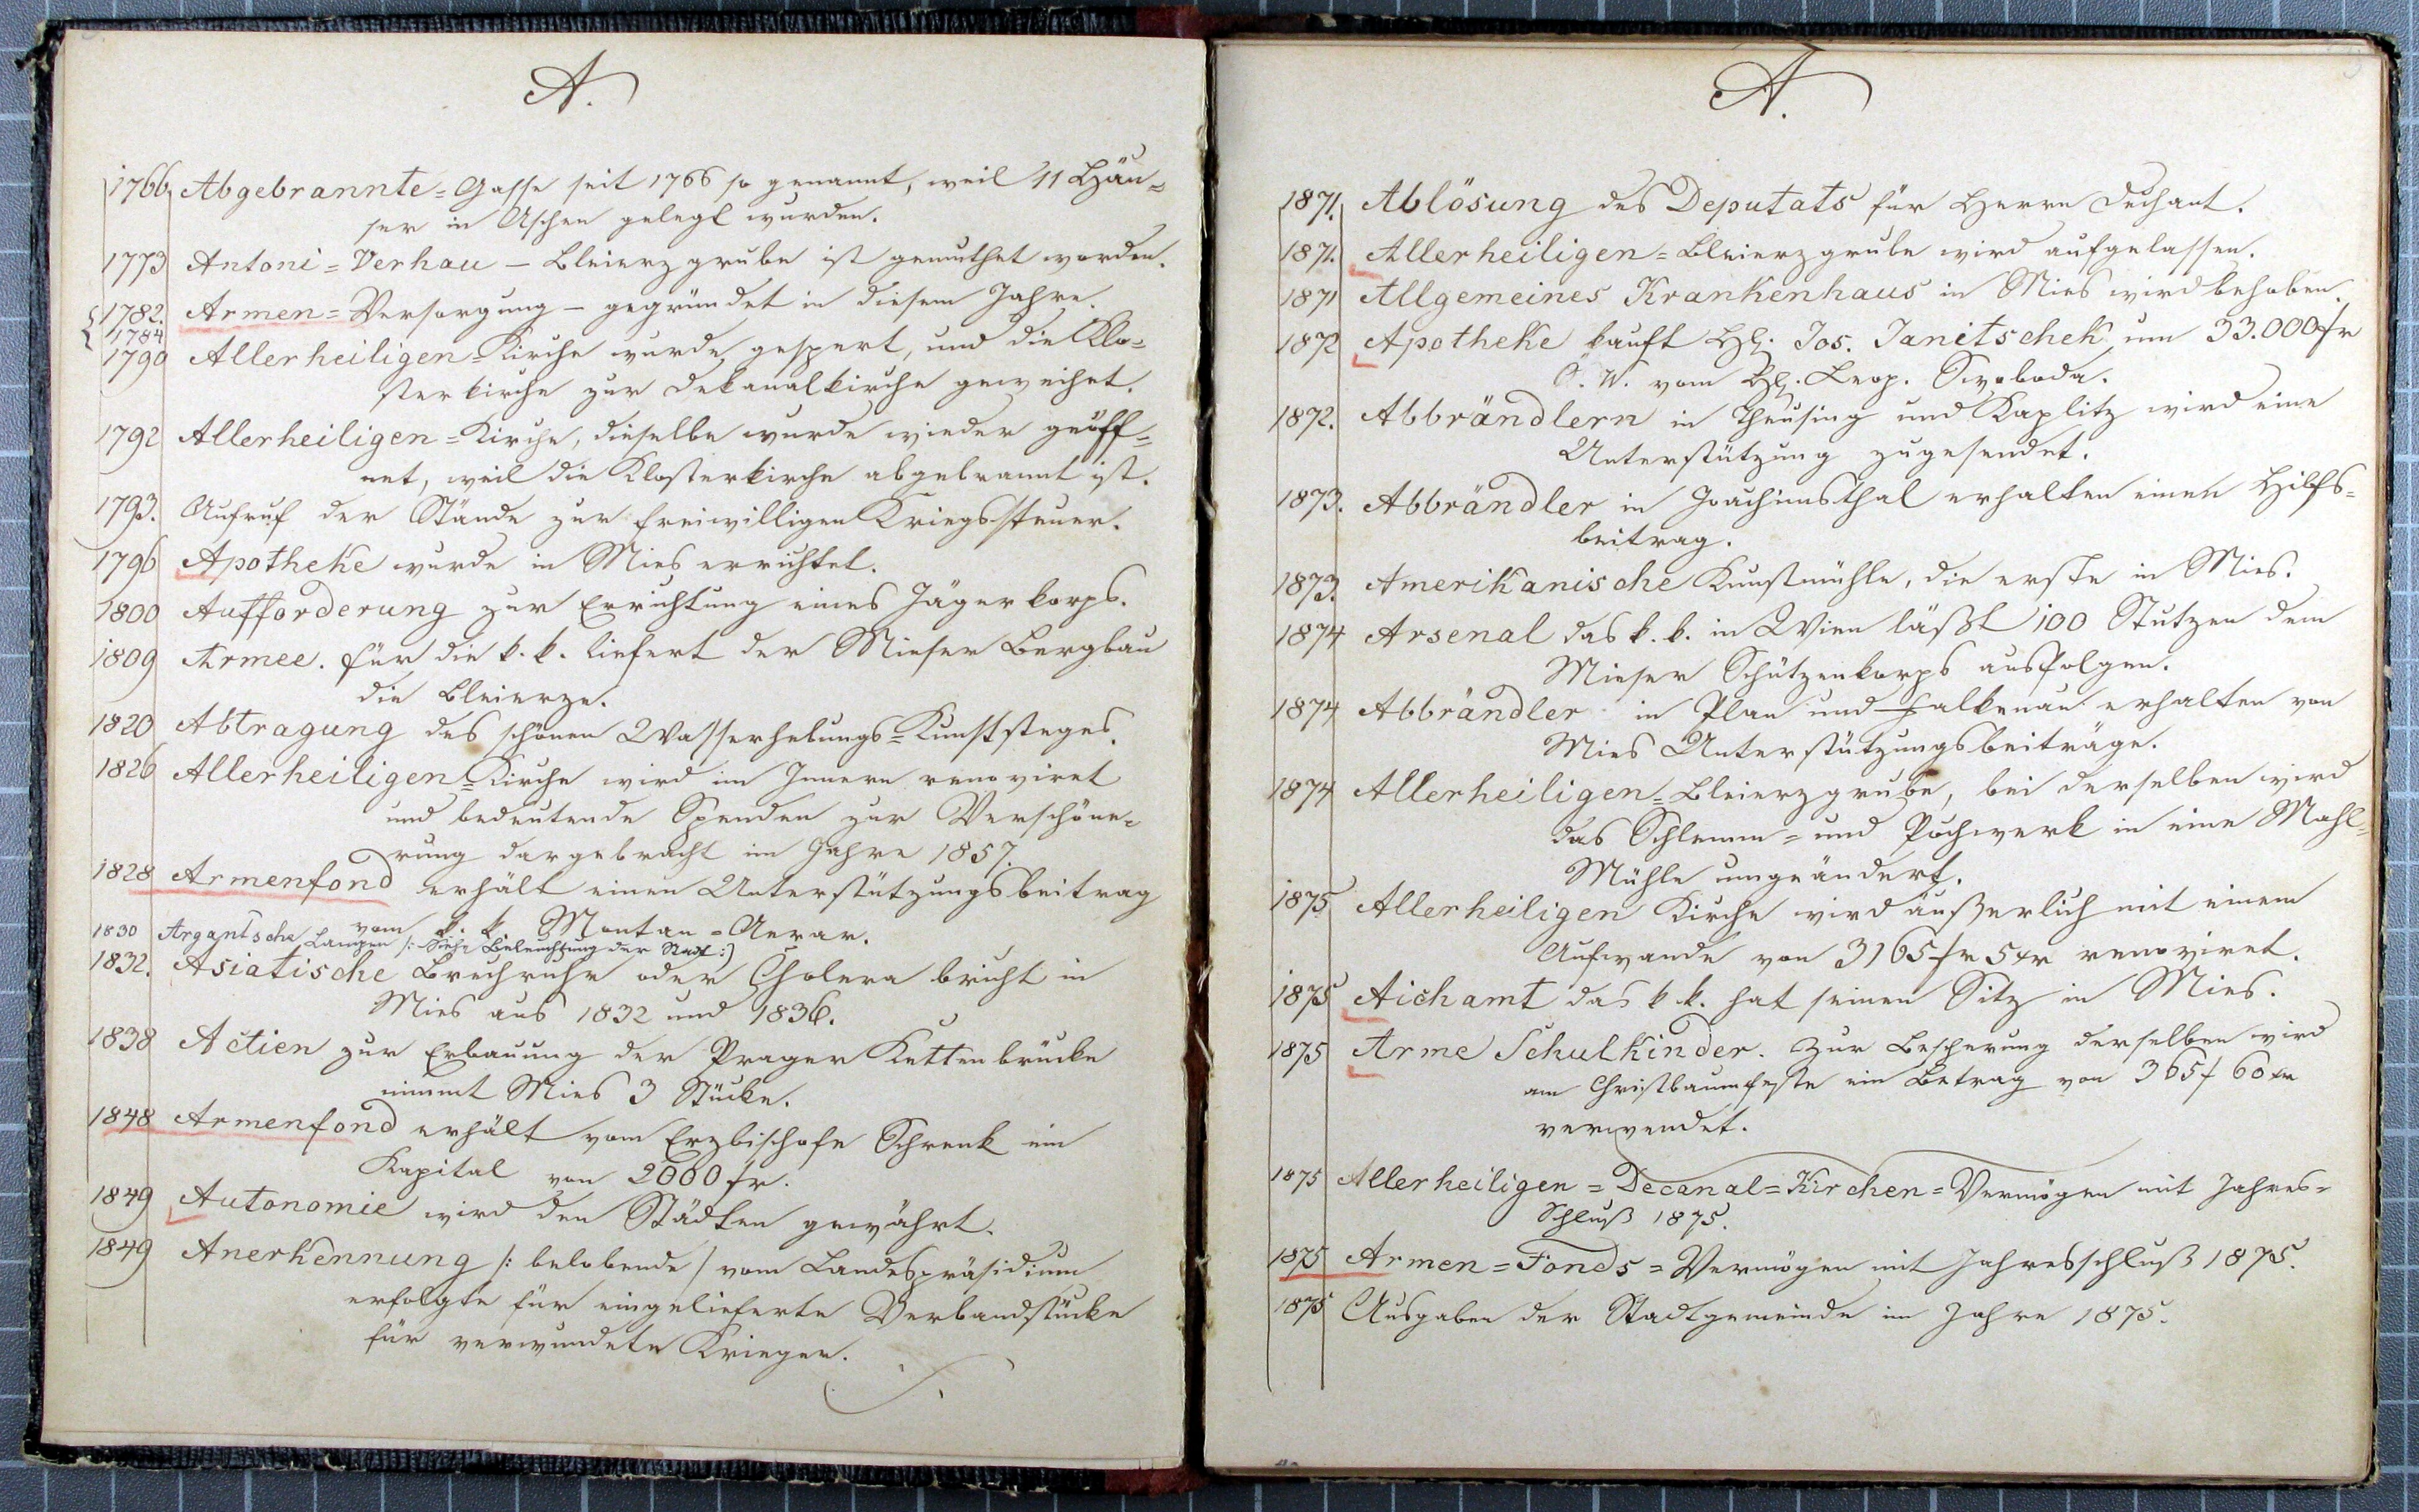 A.
1766 Abgebrannte=Gasse seit 1766 so genannt, weil 11 Häu=
ser in Aschen gelegt wurden.
1773 Antoni=Verhau – Bleierzgrube ist gemuthet worden.
1782. Armen=Versorgung – gegründet in diesem Jahre.
1784
1790 Allerheiligen=Kirche wurde gespert, und die Klo=
sterkirche zur Dekanalkirche geweihet.
1792 Allerheiligen=Kirche, dieselbe wurde wieder geöff=
net, weil die Klosterkirche abgebrannt ist.
1793. Aufruf der Stände zur freiwilligen Kriegssteuer.
1796 Apotheke wurde in Mies errichtet.
1800 Aufforderung zur Errichtung eines Jägerkorps.
1809 Armee. für die k. k. liefert der Mieser Bergbau
die Bleierze.
1820 Abtragung des schönen Wasserhebungs=Kunststeges.
1826 Allerheiligen=Kirche wird im Innern renoviret
und bedeutende Spenden zur Verschöne=
rung dargebracht im Jahre 1857.
1828 Armenfond erhält einen Unterstützungsbeitrag
vom k. k. Montan=Aerar.
1830 Argantsche Lampen /: Siehe Beleuchtung der Stadt :)
1832. Asiatische Brechruhr oder Cholera bricht in
Mies aus 1832 und 1836.
1838 Actien zur Erbauung der Prager Kettenbrücke
nimmt Mies 3 Stücke.
1848 Armenfond erhält vom Erzbischofe Schrenk ein
Kapital von 2000 fr.
1849 Autonomie wird den Städten gewährt.
1849 Anerkennung /: belobende / vom Landespräsidium
erfolgte für eingelieferte Verbandstücke
für verwundete Krieger.
A.
1871. Ablösung des Deputats für Herrn Dechant.
1871. Allerheiligen=Bleierzgrube wird aufgelassen.
1871 Allgemeines Krankenhaus in Mies wird behoben.
1872 Apotheke kauft H. Jos. Janitschek um 33.000 fr
Ö. W. vom H. Leop. Swoboda.
1872. Abbrändlern in Theusing und Kaplitz wird eine
Unterstützung zugesendet.
1873. Abbrändler in Joachimsthal erhalten einen Hilfs=
beitrag.
1873. Amerikanische Kunstmühle, die erste in Mies.
1874 Arsenal das k. k. in Wien läßt 100 Stutzen dem
Mieser Schützenkorps ausfolgen.
1874 Abbrändler in Plan und Falkenau erhalten von
Mies Unterstützungsbeiträge.
1874 Allerheiligen=Bleierzgrube, bei derselben wird
das Schlemm= und Pochwerk in eine Mahl=
Mühle umgeändert.
1875 Allerheiligen Kirche wird äußerlich mit einem
Aufwande von 3165 fr 5 xr renoviret.
1875 Aichamt das k k. hat seinen Sitz in Mies.
1875 Arme Schulkinder. Zur Bescherung derselben wird
am Christbaumfeste ein Betrag von 365 f 60 xr
verwendet.
1875 Allerheiligen=Decanal=Kirchen=Vermögen mit Jahres=
Schluß 1875.
1875 Armen=Fonds=Vermögen mit Jahresschluß 1875.
1875 Ausgaben der Stadtgemeinde im Jahre 1875.